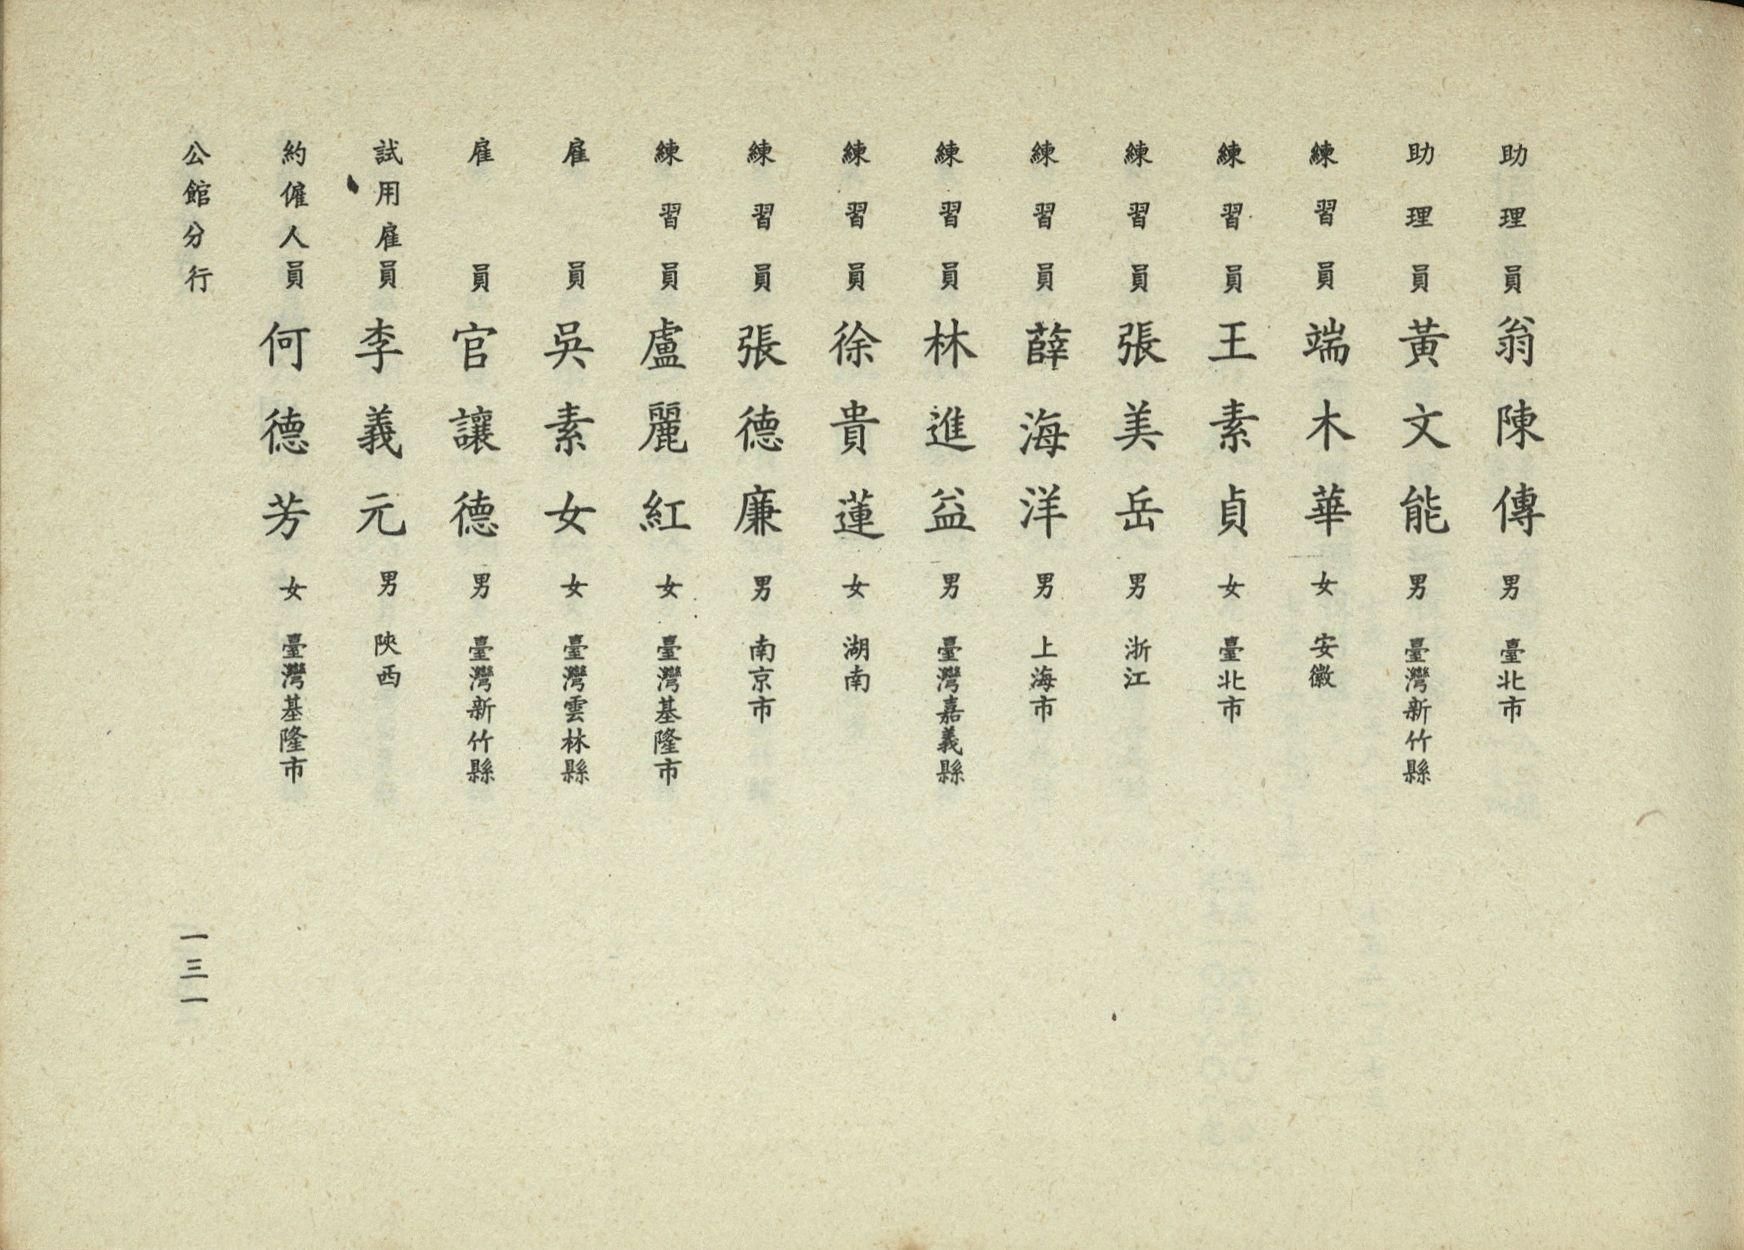 助理員翁陳傳男臺北市
助理員黃文能男臺灣新竹縣
練習員端木華女安徽
練習員王素貞女臺北市
練習員張美岳男浙江
練習員薛海洋男上海市
練習員林進益男臺灣嘉義縣
練習員徐貴蓮女湖南
練習員張德廉男南京市
練習員盧麗紅女臺灣基隆市
雇員吳素女女臺灣雲林縣
雇員官讓德男臺灣新竹縣
試用雇員李義元男陝西
約僱人員何德芳女臺灣基隆市
公館分行
一三一